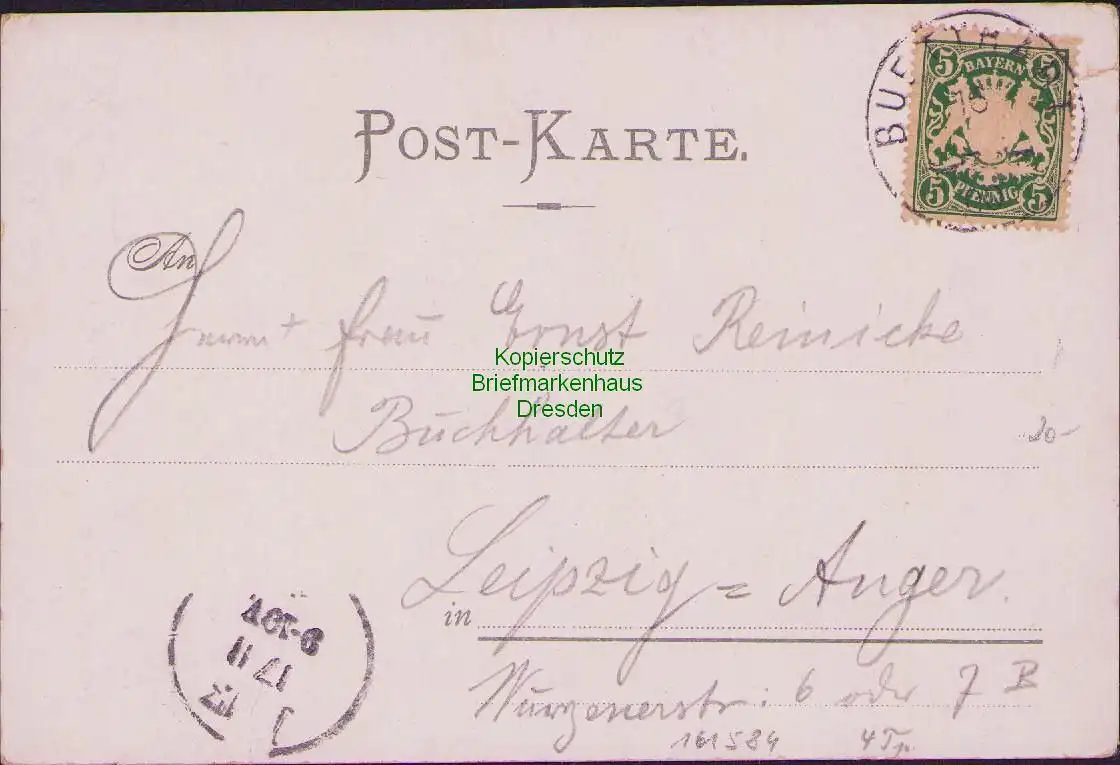 POST-KARTE.
BAYERN
5 5
PFENNIG
5 5
An
Herrn + Frau Ernst Reinicke
Kopierschutz
Briefmarkenhaus
Dresden
Buchhalter
20-
Leipzig = Anger.
in
Wurzenerstr: 6 oder 7 B
161584 4Tp.
17 11